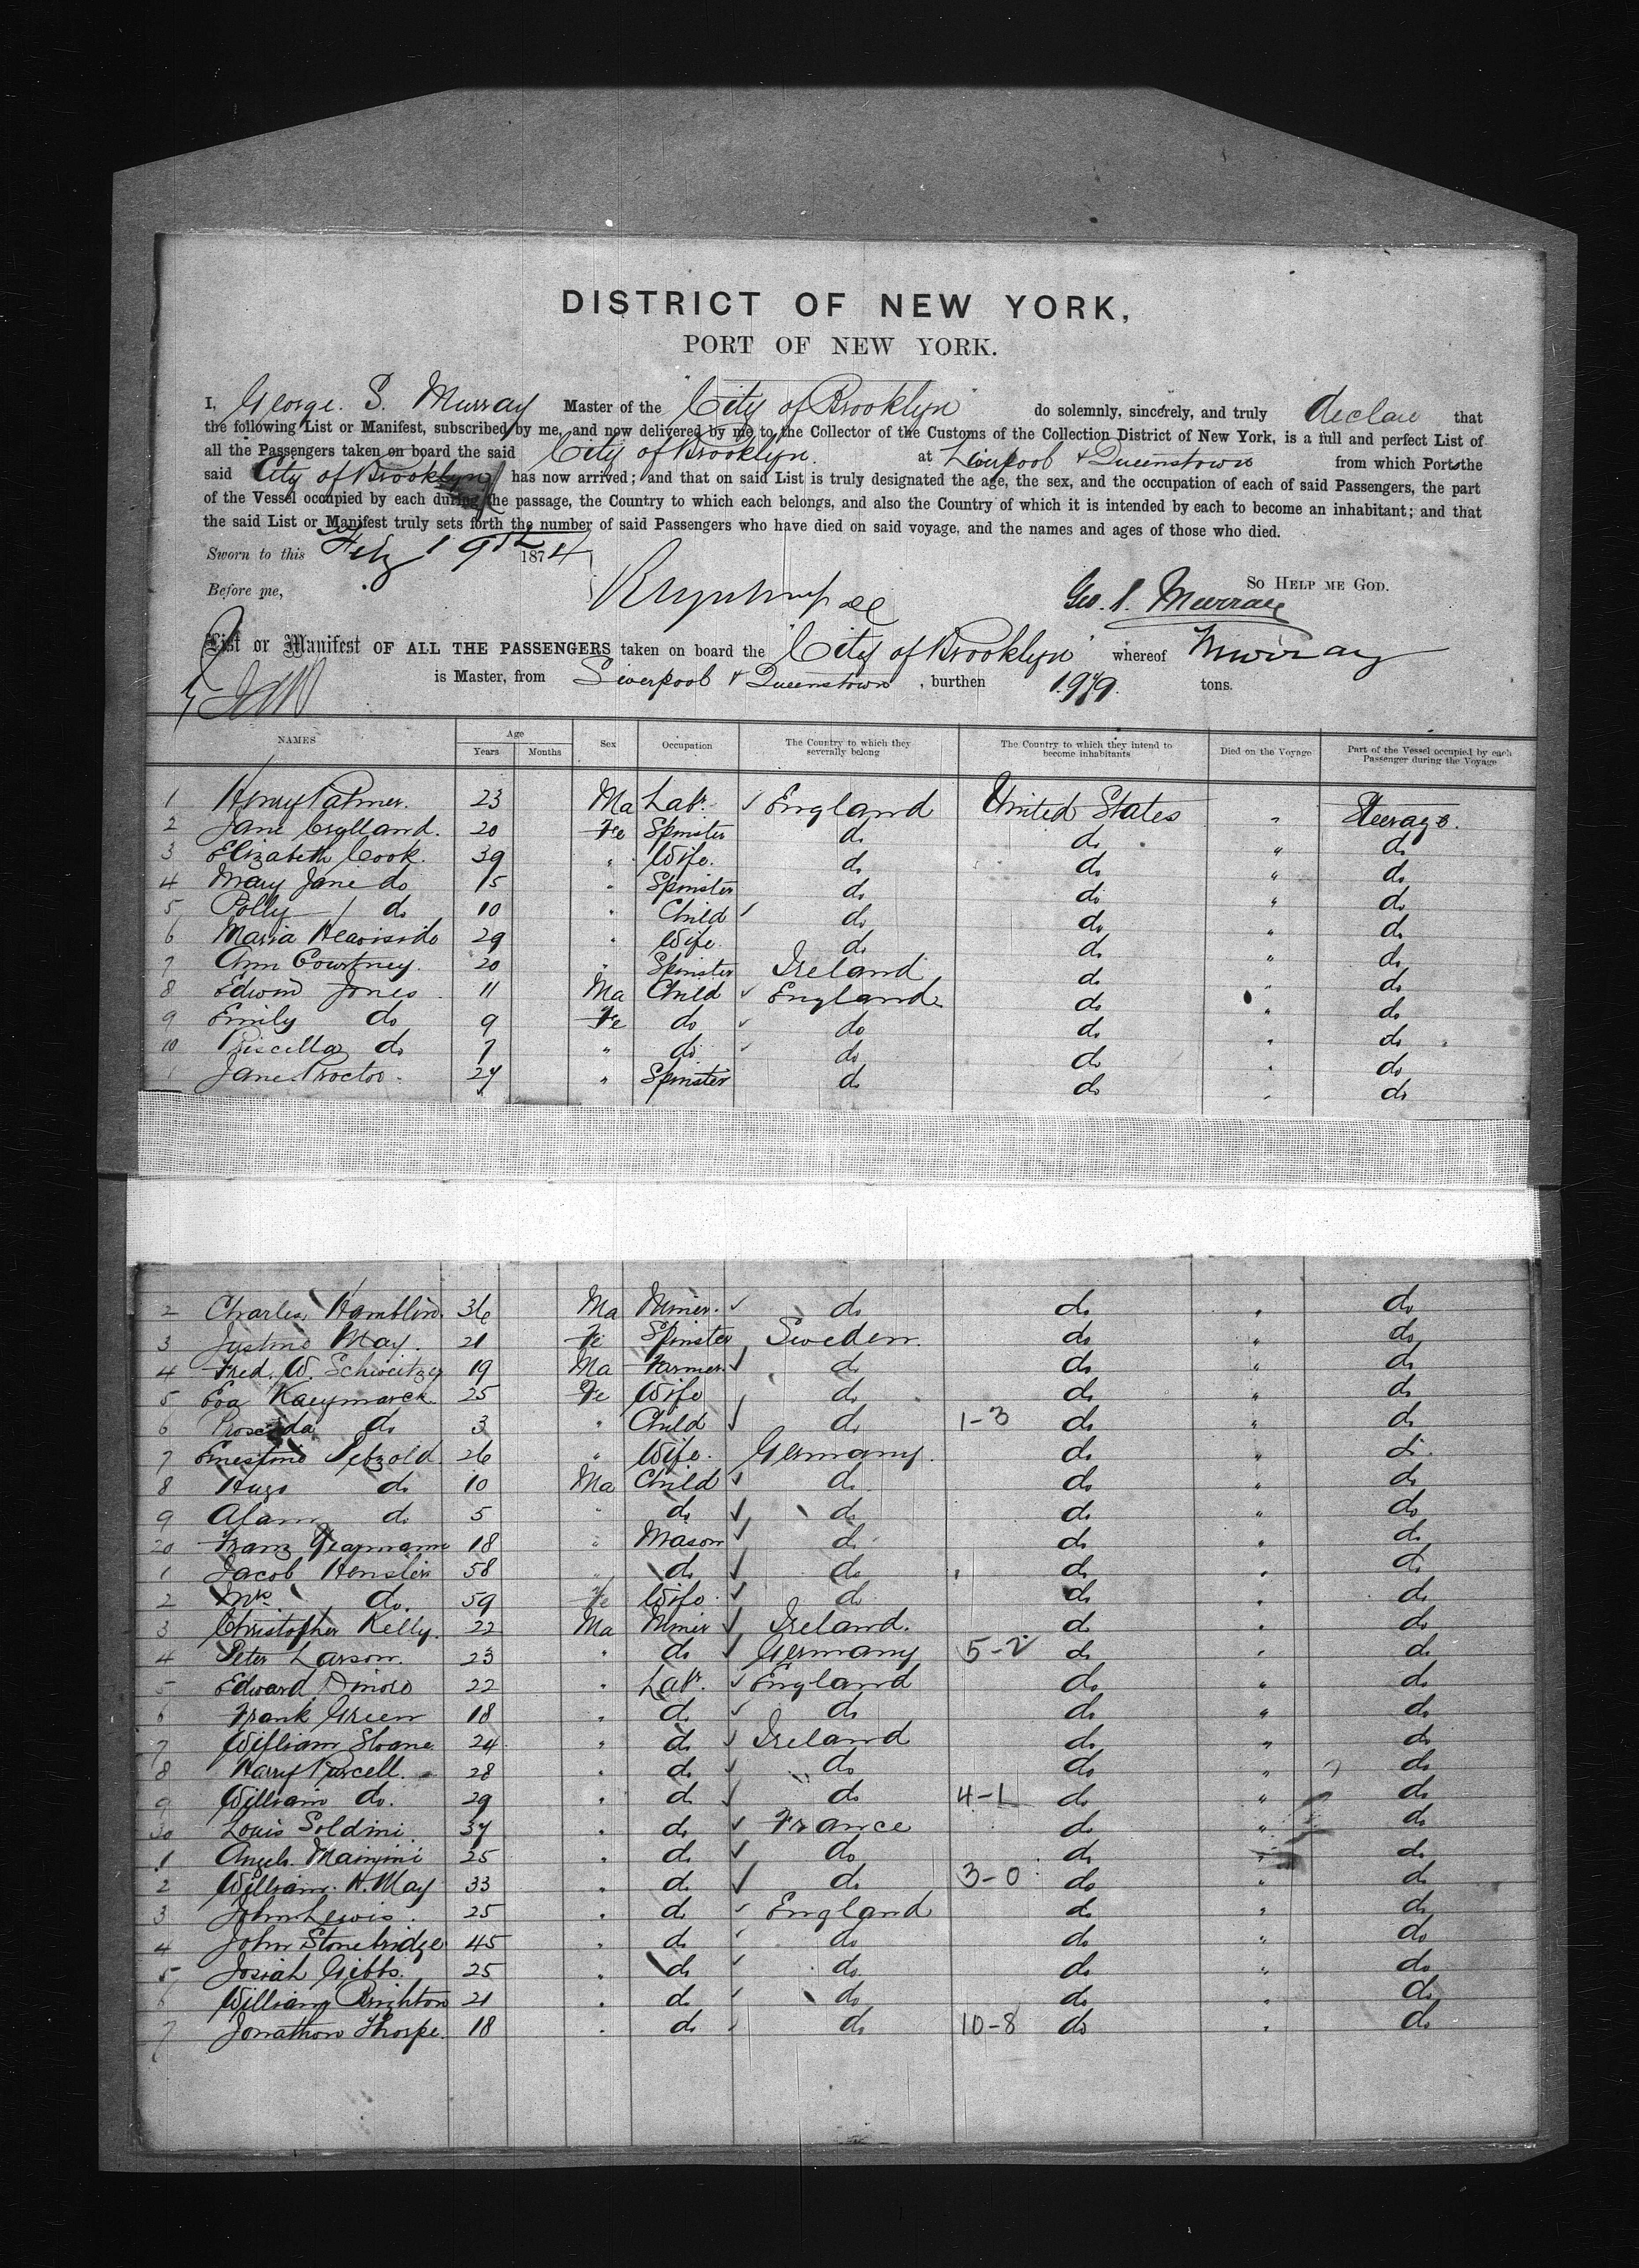 DISTRICT OF NEW YORK,
PORT OF NEW YORK.
I, George. S. Murray Master of the "City of Brooklyn" do solemnly, sincerely, and truly declare that
the following List or Manifest, subscribed by me, and now delivered by me to the Collector of the Customs of the Collection District of New York, is a full and perfect List of
all the Passengers taken on board the said City of Brooklyn. at Liverpool & Queenstown from which Port the
said City of Brooklyn has now arrived; and that on said List is truly designated the age, the sex, and the occupation of each of said Passengers, the part
of the Vessel occupied by each during the passage, the Country to which each belongs, and also the Country of which it is intended by each to become an inhabitant; and that
the said List or Manifest truly sets forth the number of said Passengers who have died on said voyage, and the names and ages of those who died.
Sworn to this Feby 19th 1874
So HELP ME GOD.
Before me, Geo. S. Murray
List or Manifest OF ALL THE PASSENGERS taken on board the "City of Brooklyn" whereof Murray
is Master, from Liverpool & Queenstown, burthen 1979. tons.
NAMES Age Years Months Sex Occupation The Country to which they severally belong The Country to which they intend to become inhabitants Died on the Voyage Part of the Vessel occupied by each Passenger during the Voyage
1 Henry Palmer. 23 Ma Labr. ✓ England United States " Steerage.
2 Jane 20 Fe Spinster do do do
3 Elizabeth Cook. 39 " Wife. do do " do
4 Mary Jane do 15 " Spinster do do " do
5 Polly do 10 " Child ✓ do do " do
6 Maria Heaviside 29 " Wife do do " do
7 Ann Courtney. 20 " Spinster Ireland do " do
8 Edwin Jones 11 Ma Child ✓ England do " do
9 Emily do 9 Fe do ✓ do do " do
10 Priscilla do 7 " do ✓ do do " do
1 Jane Proctor. 27 " Spinster do do " do
2 Charles Hamblin. 36 Ma Miner. ✓ do do " do
3 Justine May. 21 Fe Spinster Sweden do " do
4 Fred. W. Schweitzer 19 Ma Farmer ✓ do do " do
5 Eva 25 Fe Wife do do " do
6 do 3 " Child ✓ do 1-3 do " do
7 Ernestine 26 " Wife. Germany. do " do
8 Hugo do 10 Ma Child ✓ do do " do
9 do 5 " do ✓ do do " do
20 Franz 18 " Mason ✓ do do " do
1 Jacob 58 " do ✓ do do " do
2 Mrs do. 59 Fe Wife ✓ do do " do
3 Christopher Kelly. 22 Ma Miner ✓ Ireland. do " do
4 Peter Larson. 23 " do ✓ Germany 5-2 do " do
5 Edward 22 " Labr. ✓ England do " do
6 Frank Green 18 " do ✓ do do " do
7 William Sloane 24 " do ✓ Ireland do " do
8 Harry Purcell. 28 " do ✓ do do " do
9 William do. 29 " do ✓ do 4-1 do " do
30 Louis Soldini 37 " do ✓ France do " do
1 25 " do ✓ do do " do
2 William. H. May 33 " do ✓ do 3-0 do " do
3 John Lewis. 25 " do ✓ England do " do
4 John Stonebridge 45 " do ✓ do do " do
5 Josiah Gibbs. 25 " do ✓ do do " do
6 William Brighton 21 " do ✓ do do " do
7 Jonathon Thorpe. 18 " do ✓ do 10-8 do " do